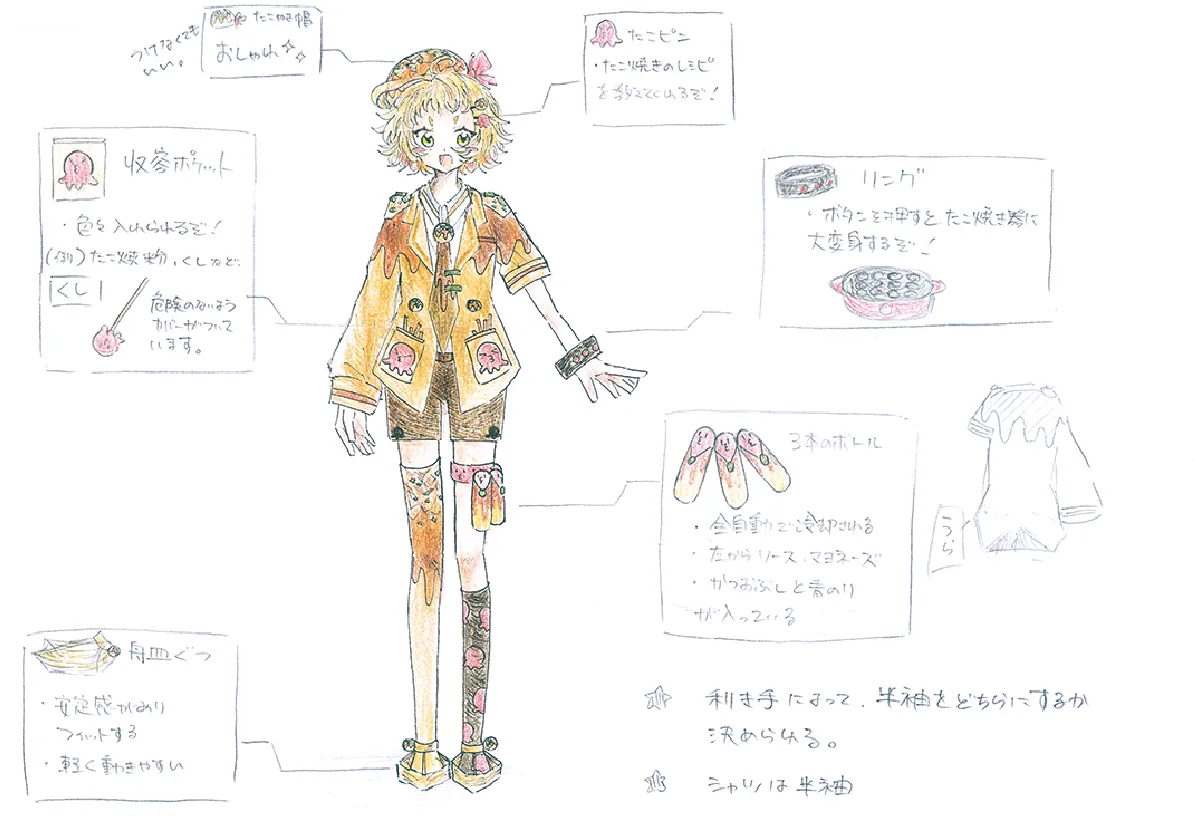 つけなくても
いい。
たこやき帽
おしゃれ
たこピン
・たこ焼きのレシピ
を教えてくれるぞ！
収容ポケット
・色々入れられるぞ！
(例)たこ焼粉、くしなど。
くし
危険のないよう
カバーがついて
います。
リング
・ボタンを押すとたこ焼き器に
大変身するぞ！
3本のボトル
・全自動で冷却される
・左からソース、マヨネーズ
・かつおぶしと青のり
が入っている
うら
舟皿ぐつ
・安定感があり
フィットする
・軽く動きやすい
☆ 利き手によって、半袖をどちらにするか
決められる。
☆ シャツは半袖